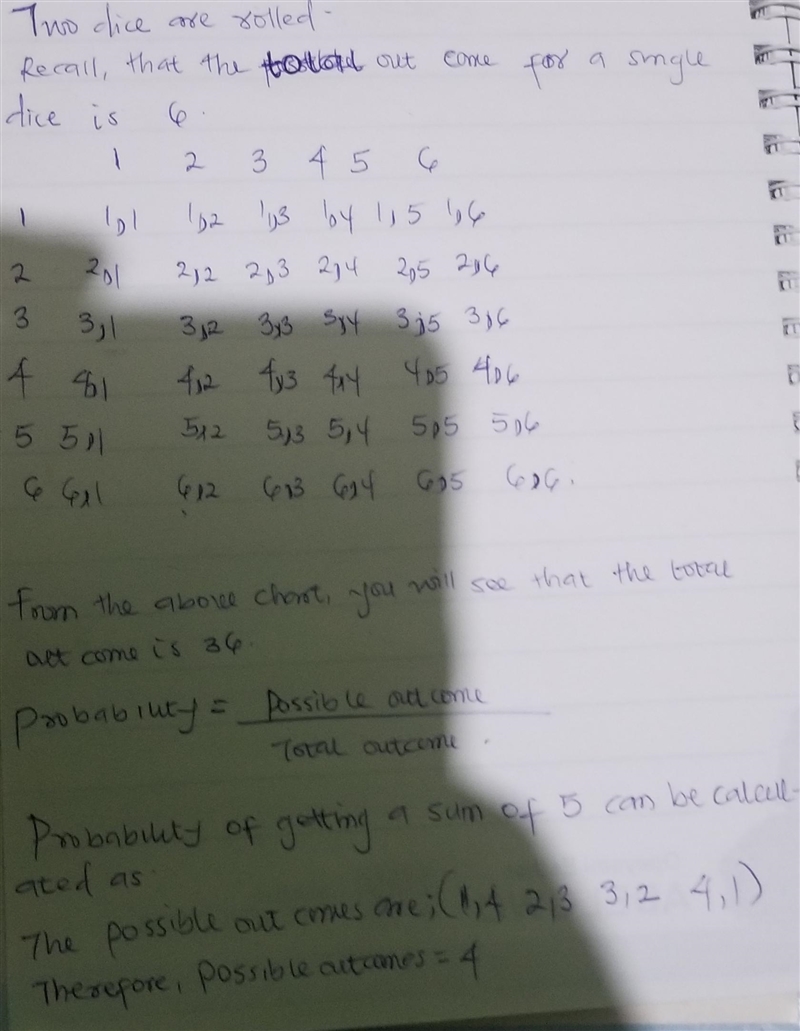 Two dice are rolled.
Recall, that the out come for a single
dice is 6.
1 2 3 4 5 6
1 1,1 1,2 1,3 1,4 1,5 1,6
2 2,1 2,2 2,3 2,4 2,5 2,6
3 3,1 3,2 3,3 3,4 3,5 3,6
4 4,1 4,2 4,3 4,4 4,5 4,6
5 5,1 5,2 5,3 5,4 5,5 5,6
6 6,1 6,2 6,3 6,4 6,5 6,6.
From the above chart, you will see that the total
out come is 36.
Probability = Possible out come
Total outcome.
Probability of getting a sum of 5 can be calcul-
ated as
The possible out comes are; (1,4 2,3 3,2 4,1)
Therefore, possible outcomes = 4